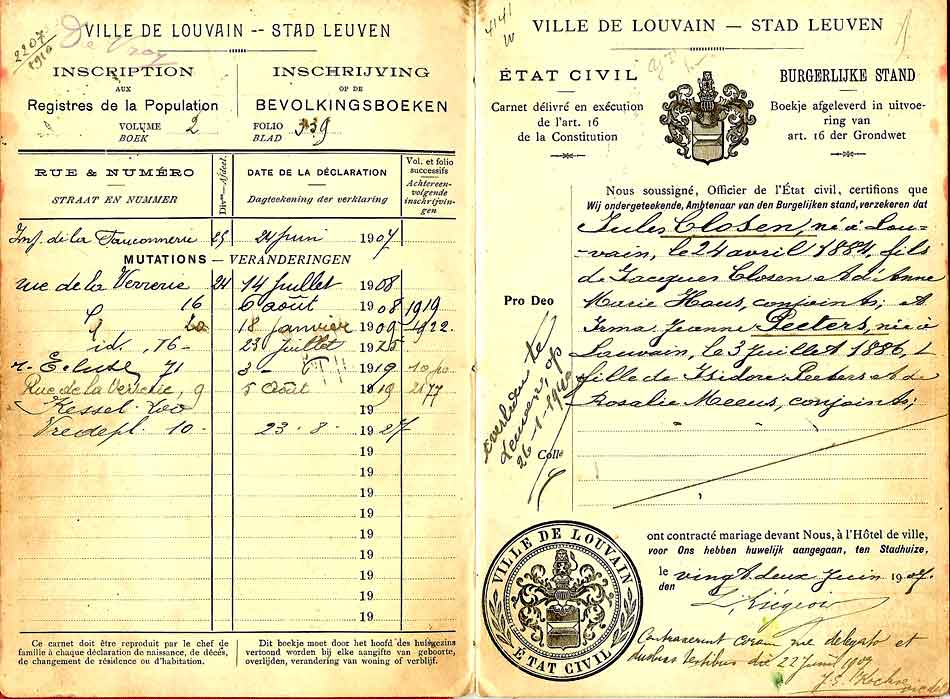 2207
1910
De Vroy
VILLE DE LOUVAIN -- STAD LEUVEN
INSCRIPTION
AUX
Registres de la Population
INSCHRIJVING
OP DE
BEVOLKINGSBOEKEN
VOLUME
BOEK
2
FOLIO
BLAD
339
RUE & NUMÉRO
STRAAT EN NUMMER
Divon — Afdeel.
DATE DE LA DÉCLARATION
Dagteekening der verklaring
Vol. et folio
successifs
Achtereen-
volgende
inschrijvin-
gen
Imp. de la Fauconnerie 25 24 juin 1907
MUTATIONS — VERANDERINGEN
rue de la Verrerie 24 14 juillet 1908
16 6 août 1908 1919
20 18 janvier 1909 1922.
id. 16 - 23 juillet 19
71 3 - 1919
Rue de la Verrerie, 9 5 Août 1919 2177
Kessel-Loo 19
Vredepl. 10 - 23 - 8 - 1927
19
19
19
19
19
19
19
19
19
Ce carnet doit être reproduit par le chef de
famille à chaque déclaration de naissance, de décès,
de changement de résidence ou d'habitation.
Dit boekje moet door het hoofd des huisgezins
vertoond worden bij elke aangifte van geboorte,
overlijden, verandering van woning of verblijf.
4141
VILLE DE LOUVAIN — STAD LEUVEN
ÉTAT CIVIL
Carnet délivré en exécution
de l'art. 16
de la Constitution
BURGERLIJKE STAND
Boekje afgeleverd in uitvoe-
ring van
art. 16 der Grondwet
Nous soussigné, Officier de l'État civil, certifions que
Wij ondergeteekende, Ambtenaar van den Burgelijken stand, verzekeren dat
Jules Closen, né à Lou-
vain, le 24 avril 1884, fils
de Jacques Closen et d'Anne
Marie Haus, conjoints; et
Irma Jeanne Peeters, née à
Louvain, le 3 juillet 1886,
fille de Isidore Peeters et de
Rosalie Meeus, conjoints;
Pro Deo
overleden te
Leuven, op
26-1-1940
Collé
ont contracté mariage devant Nous, à l'Hôtel de ville,
voor Ons hebben huwelijk aangegaan, ten Stadhuize,
le
den
vingt deux juin 1907.
VILLE DE LOUVAIN
ETAT CIVIL
Contraxerunt coram me delegato et
duobus testibus die 22 juni 1907